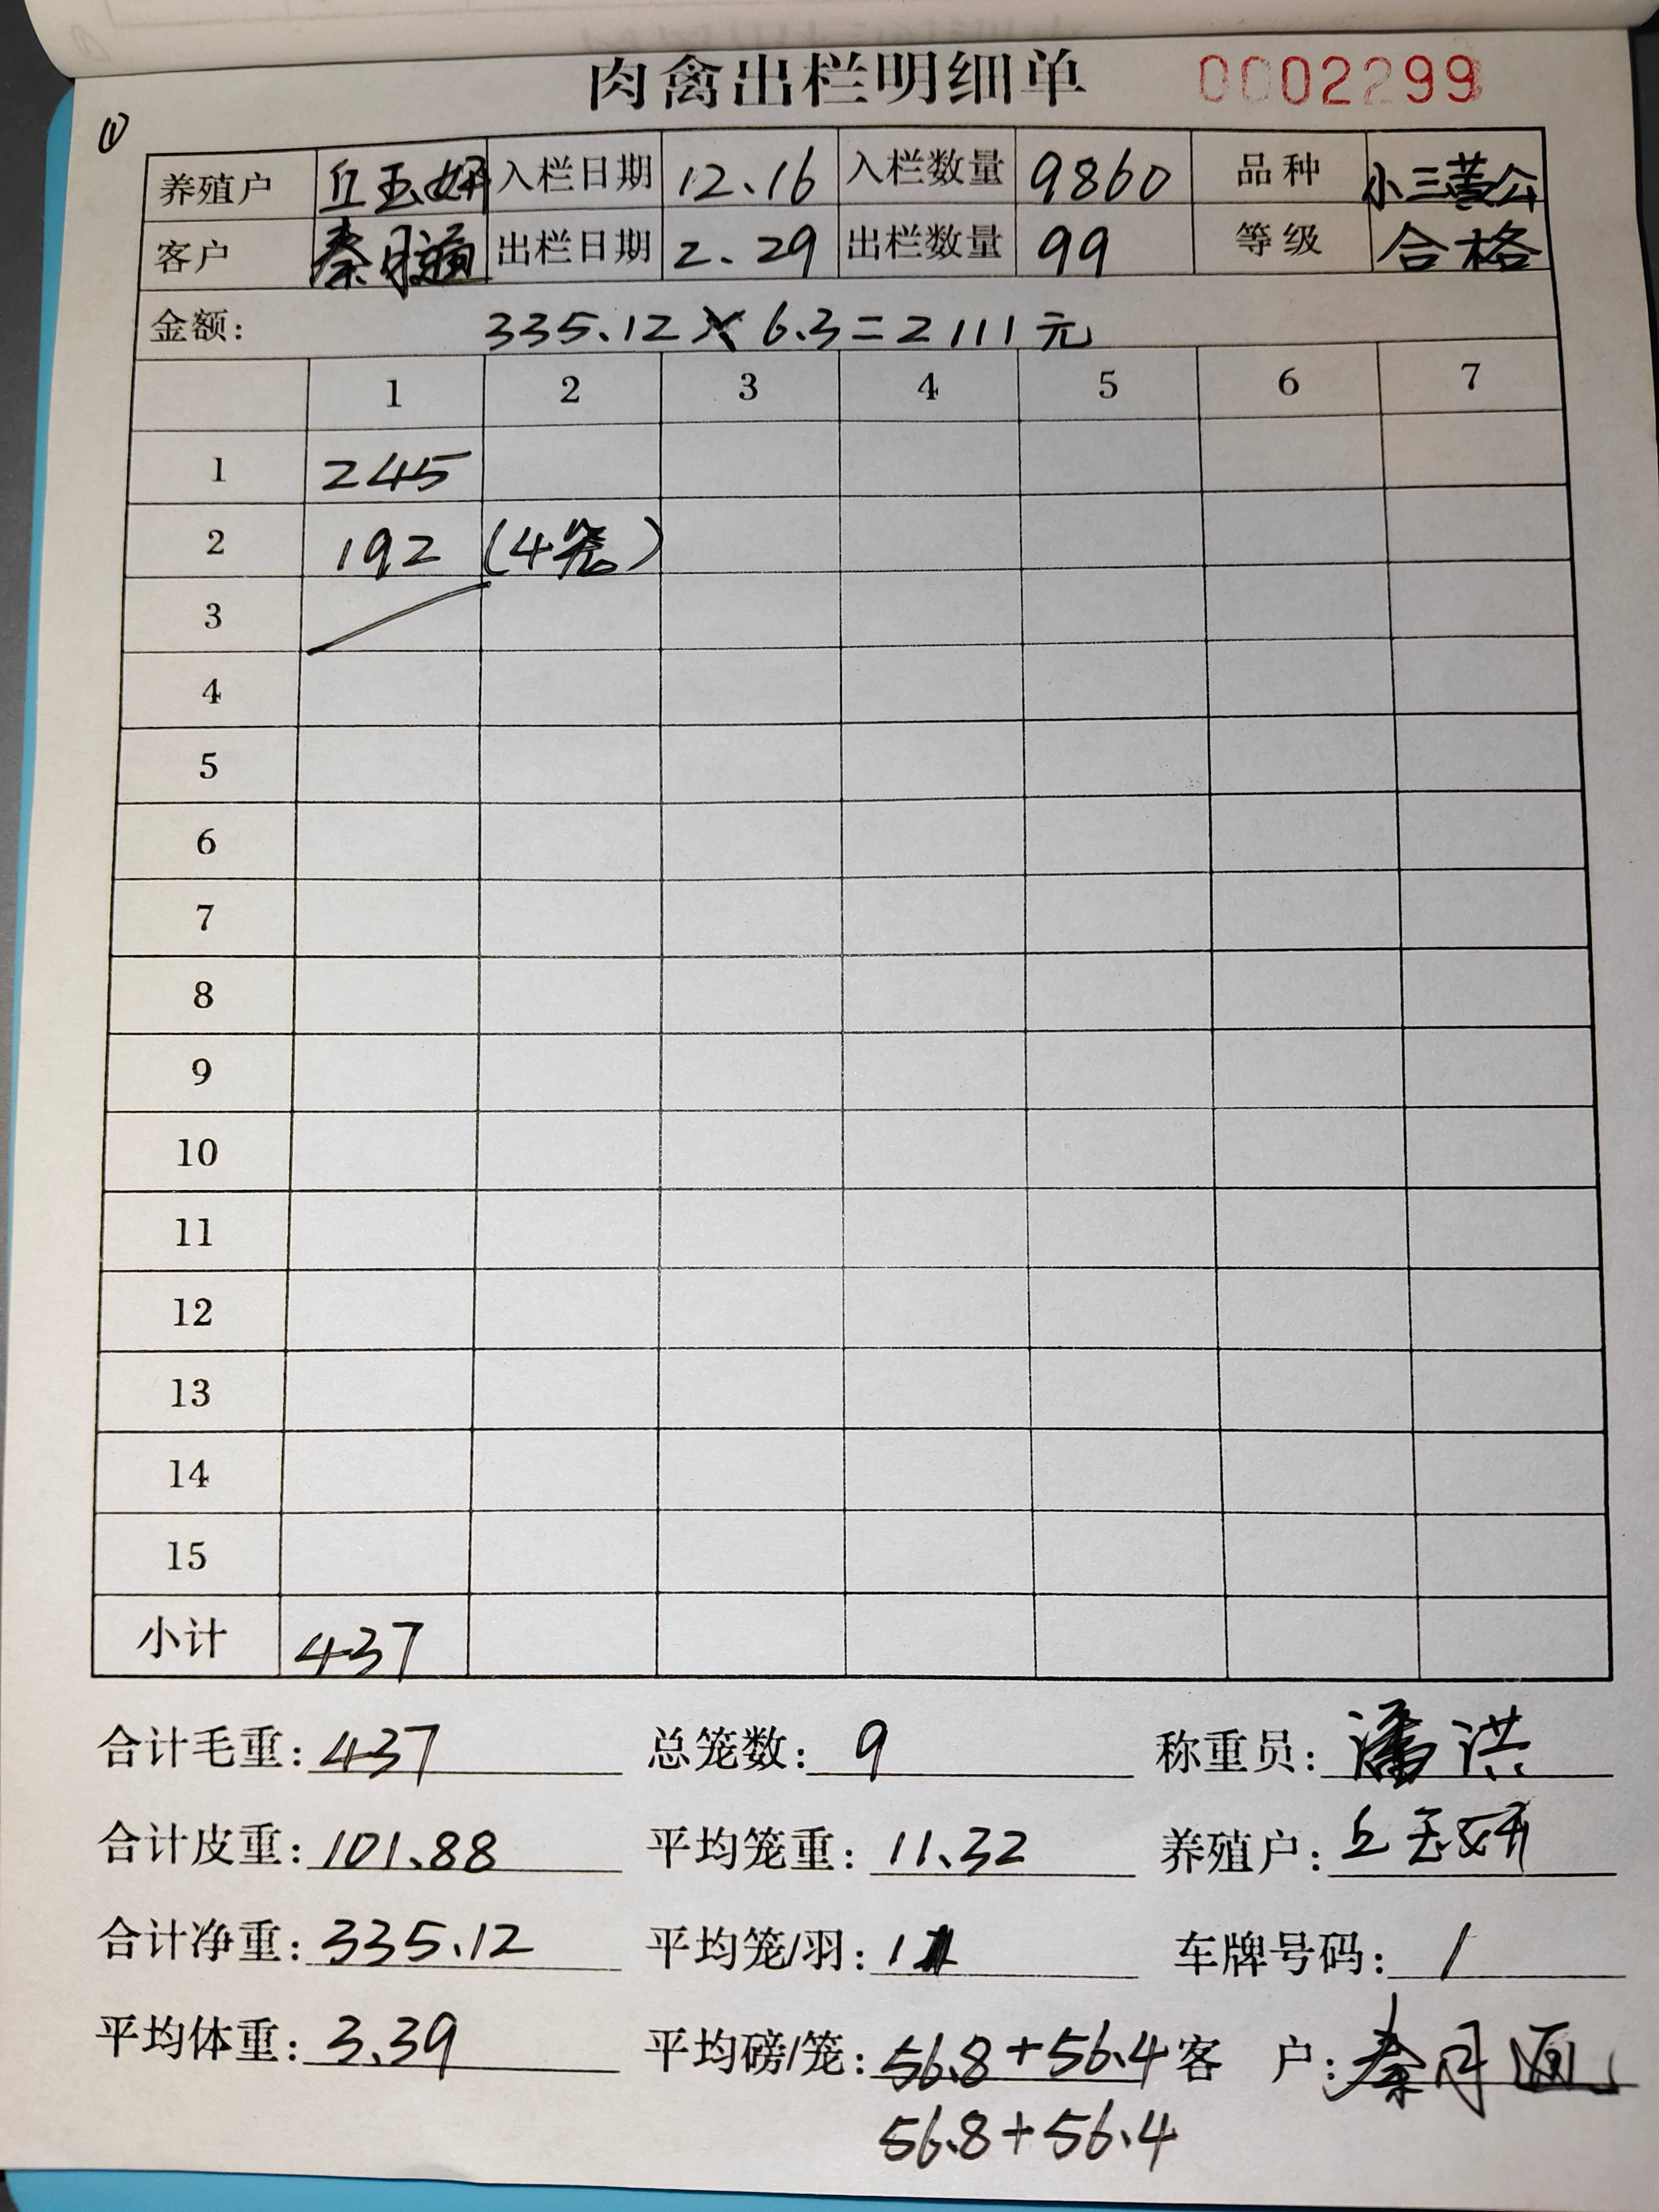 肉禽出栏明细单 0002299
①
养殖户 丘玉妍 入栏日期 12.16 入栏数量 9860 品种 小三黄公
客户 秦月 出栏日期 2.29 出栏数量 99 等级 合格
金额: 335.12×6.3=2111元
1 2 3 4 5 6 7
1 245
2 192 (4笼)
3
4
5
6
7
8
9
10
11
12
13
14
15
小计 437
合计毛重: 437 总笼数: 9 称重员: 潘洪
合计皮重: 101.88 平均笼重: 11.32 养殖户: 丘玉妍
合计净重: 335.12 平均笼/羽: 11 车牌号码: /
平均体重: 3.39 平均磅/笼: 56.8+56.4 客 户: 秦月
56.8+56.4